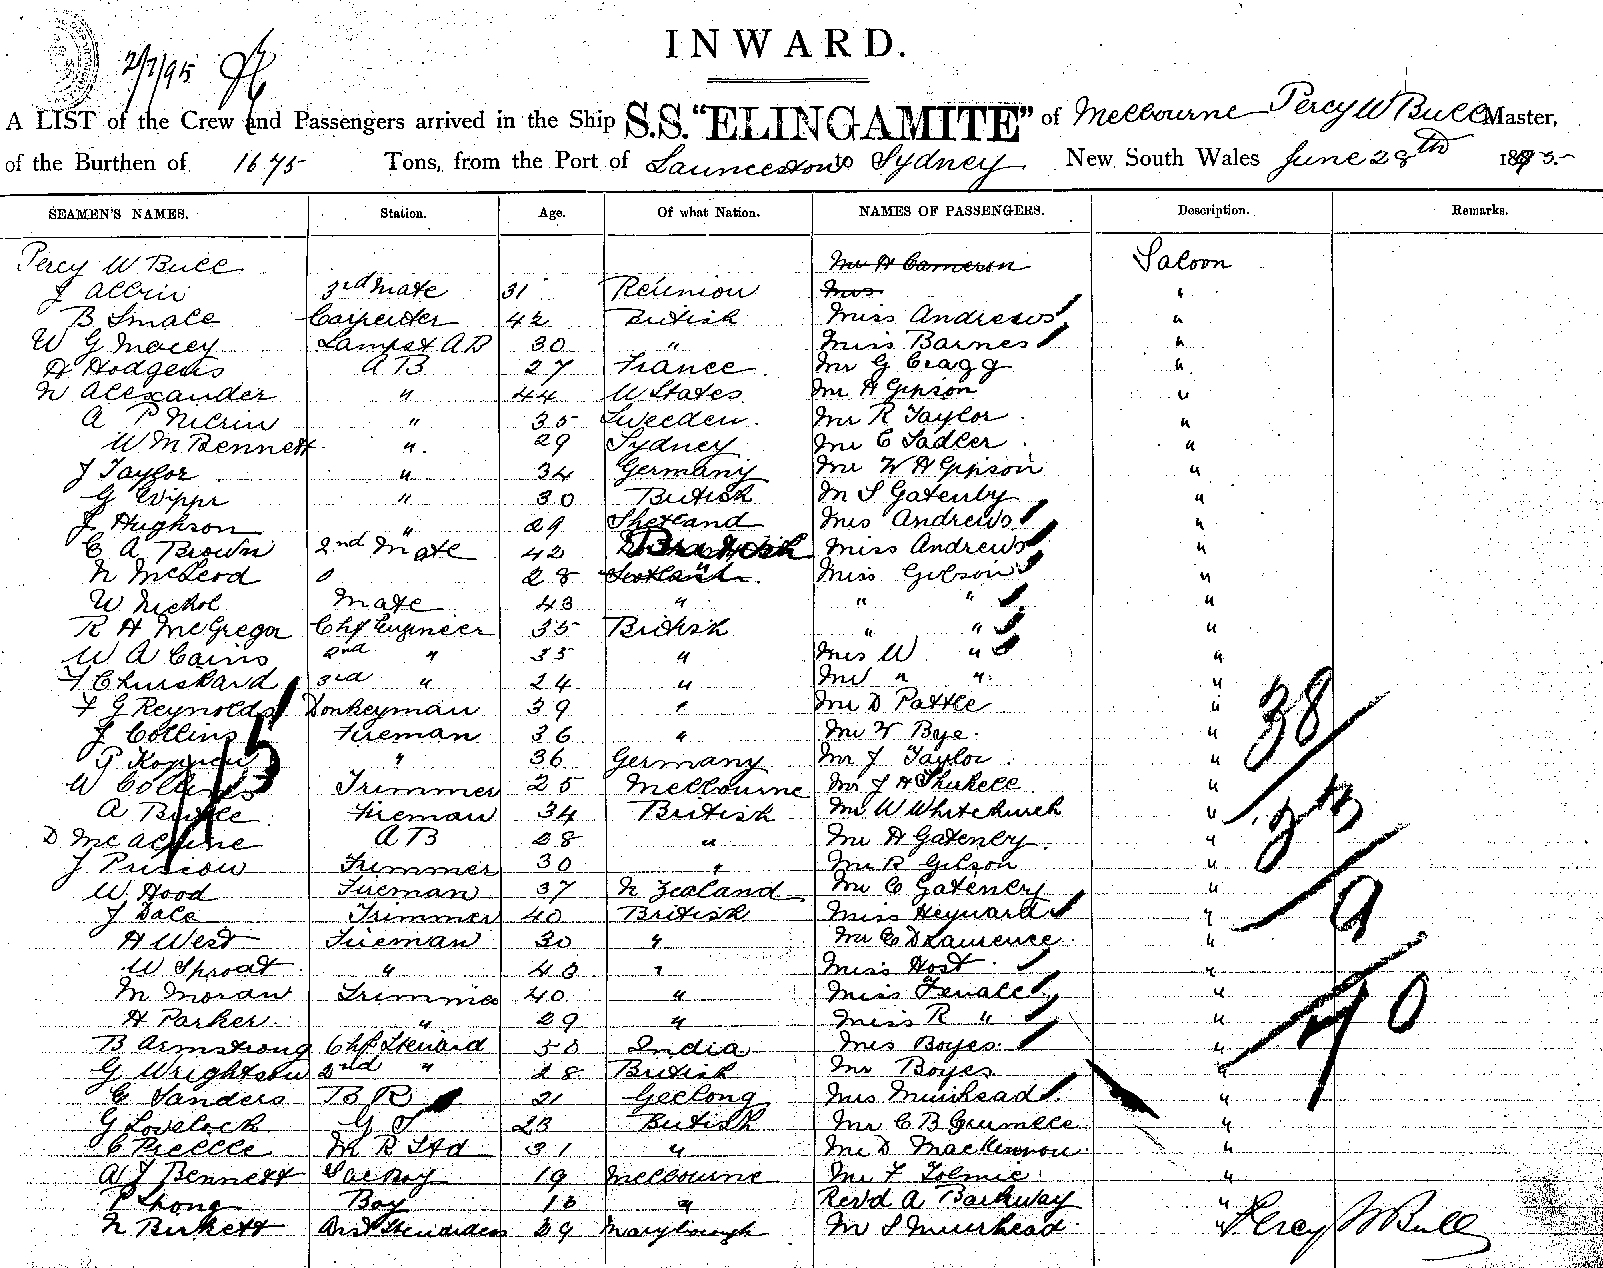 2/7/95
INWARD.
A LIST of the Crew and Passengers arrived in the Ship S.S. "ELINGAMITE" of Melbourne Percy W Bull Master,
of the Burthen of 1675 Tons, from the Port of Launceston to Sydney New South Wales June 28th 1895.
SEAMEN'S NAMES. Station. Age. Of what Nation. NAMES OF PASSENGERS. Description. Remarks.
Percy W Bull Mr H Cameron Saloon
J 3rd Mate 31 Reunion Mrs "
B Smale Carpenter 42 British Miss Andrews "
W G Macey Lamps & AB 30 " Miss Barnes "
H Hodgens AB 27 France Mr G Cragg "
N Alexander " 44 U States Mr H Gipson "
A P " 35 Sweeden. Mr R Taylor "
W M Bennett " 29 Sydney Mr C Sadler "
J Taylor " 34 Germany Mr W H Gipson "
G " 30 British M S Gatenby "
J Hughson " 29 Shetland Mrs Andrews "
C A Brown 2nd Mate 42 British Miss Andrews "
N McLeod 28 Scotland " Miss Gibson "
W Nichol Mate 43 " " " "
R H McGregor Chf Engineer 35 British " " "
W A Cains 2nd " 35 " Mrs W " "
F 3rd " 24 " Mr " " "
F G Reynolds Donkeyman 39 " Mr D Pattle "
J Collins Fireman 36 " Mr W Bye. " 38
P " 36 Germany Mr J Taylor "
W Collins Trimmer 25 Melbourne Mr J H "
A Fireman 34 British Mr W Whitchurch "
D McAlpine AB 28 " Mr H Gatenby. "
J Trimmer 30 " Mr R Gibson "
W Hood Fireman 37 N Zealand Mr C Gatenby "
J Dale Trimmer 40 British Miss Heyward " 9
H West Fireman 30 " Mr C D Laurence "
W Sproat " 40 " Miss Host "
M Moran Trimmer 40 " Miss "
H Parker " 29 " Miss R " " 70
B Armstrong Chf Steward 50 India Mrs Boyes "
G Wrightson 2nd " 28 British Mr Boyes "
C Sanders B R 21 Geelong Mrs Muirhead "
G Lovelock G S 23 British Mr C B "
C M R Std 31 " Mr D Mackinnon "
A J Bennett 19 Melbourne Mr F Tolmie "
P Boy 16 " Revd A Barkway "
N Birkett Stewardess 29 Maryborough M S Muirhead "
Percy W Bull